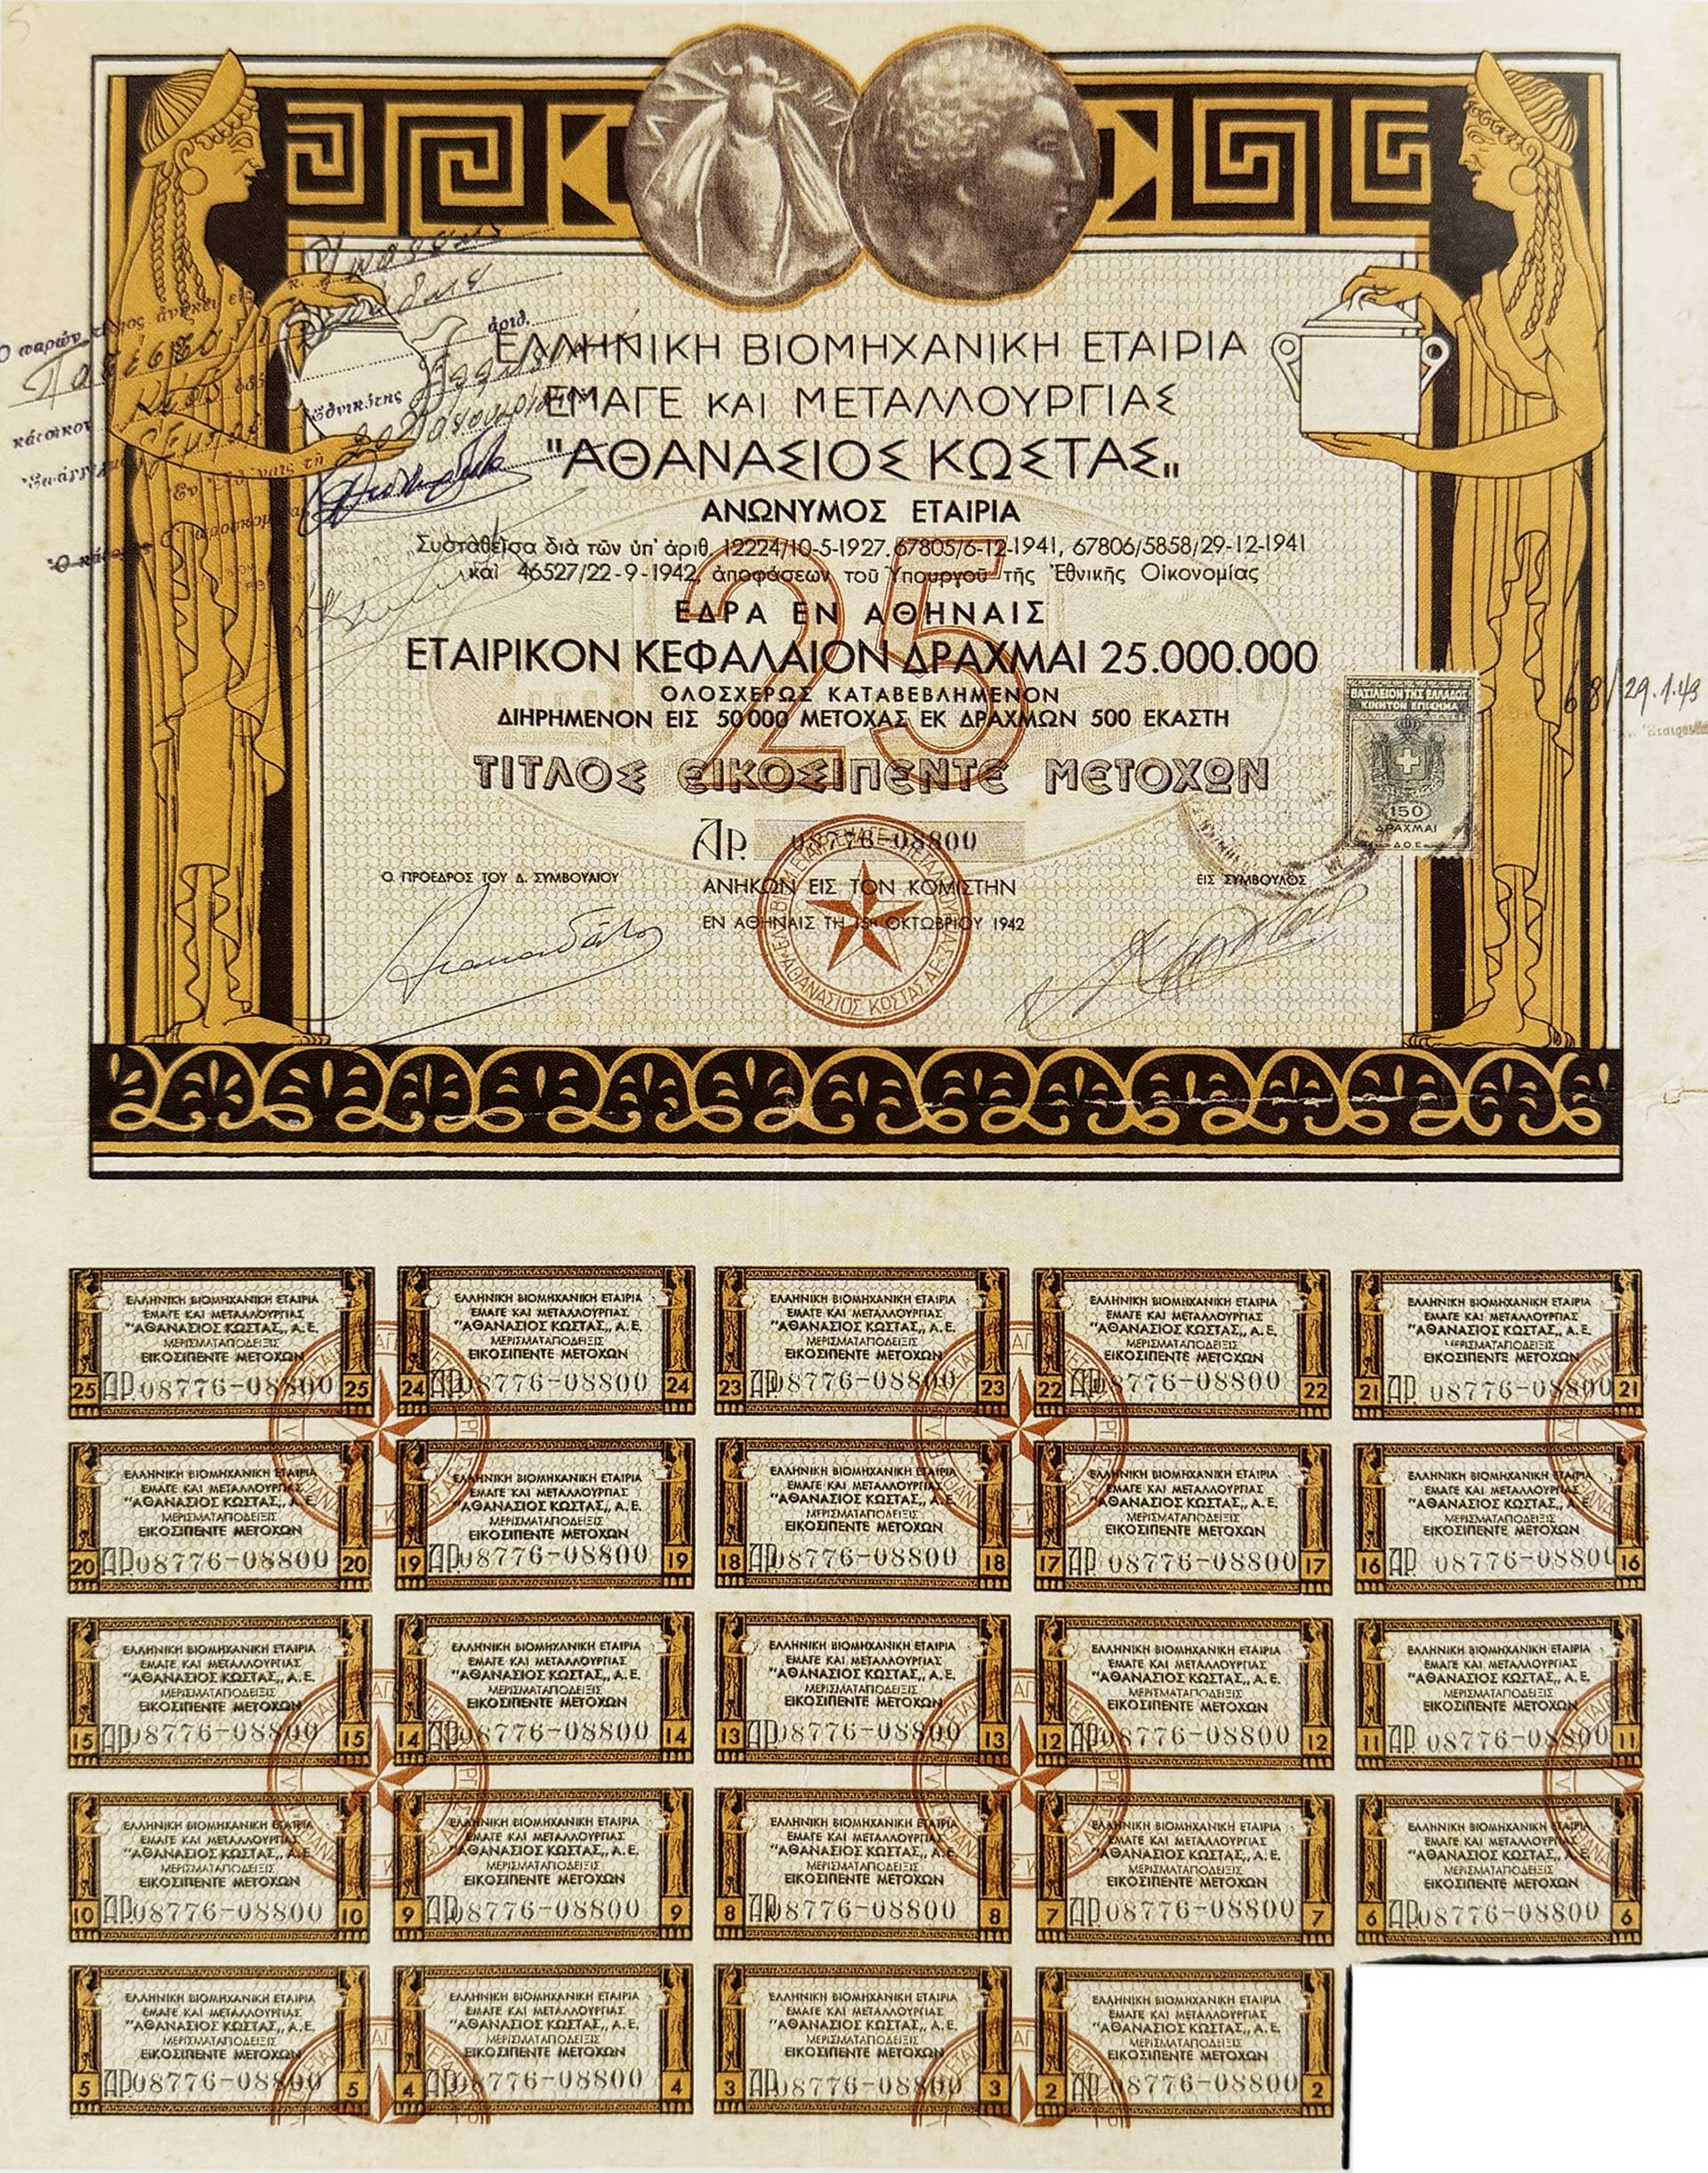 ΕΛΛΗΝΙΚΗ ΒΙΟΜΗΧΑΝΙΚΗ ΕΤΑΙΡΙΑ
ΕΜΑΓΕ ΚΑΙ ΜΕΤΑΛΛΟΥΡΓΙΑΣ
"ΑΘΑΝΑΣΙΟΣ ΚΩΣΤΑΣ„
ΑΝΩΝΥΜΟΣ ΕΤΑΙΡΙΑ
Συσταθεῖσα διὰ τῶν ὑπ' ἀριθ. 12224/10-5-1927, 67805/6-12-1941, 67806/5858/29-12-1941
καὶ 46527/22-9-1942, ἀποφάσεων τοῦ Ὑπουργοῦ τῆς Ἐθνικῆς Οἰκονομίας
ΕΔΡΑ ΕΝ ΑΘΗΝΑΙΣ
ΕΤΑΙΡΙΚΟΝ ΚΕΦΑΛΑΙΟΝ ΔΡΑΧΜΑΙ 25.000.000
ΟΛΟΣΧΕΡΩΣ ΚΑΤΑΒΕΒΛΗΜΕΝΟΝ
ΔΙΗΡΗΜΕΝΟΝ ΕΙΣ 50000 ΜΕΤΟΧΑΣ ΕΚ ΔΡΑΧΜΩΝ 500 ΕΚΑΣΤΗ
25
ΤΙΤΛΟΣ ΕΙΚΟΣΙΠΕΝΤΕ ΜΕΤΟΧΩΝ
ΑΡ. 08776-08800
ΒΑΣΙΛΕΙΟΝ ΤΗΣ ΕΛΛΑΔΟΣ
ΚΙΝΗΤΟΝ ΕΠΙΣΗΜΑ
150
ΔΡΑΧΜΑΙ
29.1.43
Ο ΠΡΟΕΔΡΟΣ ΤΟΥ Δ. ΣΥΜΒΟΥΛΙΟΥ
ΑΝΗΚΩΝ ΕΙΣ ΤΟΝ ΚΟΜΙΣΤΗΝ
ΕΙΣ ΣΥΜΒΟΥΛΟΣ
ΕΝ ΑΘΗΝΑΙΣ ΤΗ 15η ΟΚΤΩΒΡΙΟΥ 1942
ΑΘΑΝΑΣΙΟΣ ΚΩΣΤΑΣ Α.Ε.
ΕΛΛΗΝΙΚΗ ΒΙΟΜΗΧΑΝΙΚΗ ΕΤΑΙΡΙΑ
ΕΜΑΓΕ ΚΑΙ ΜΕΤΑΛΛΟΥΡΓΙΑΣ
"ΑΘΑΝΑΣΙΟΣ ΚΩΣΤΑΣ„ Α.Ε.
ΜΕΡΙΣΜΑΤΑΠΟΔΕΙΞΙΣ
ΕΙΚΟΣΙΠΕΝΤΕ ΜΕΤΟΧΩΝ
25 ΑΡ. 08776-08800 25
ΕΛΛΗΝΙΚΗ ΒΙΟΜΗΧΑΝΙΚΗ ΕΤΑΙΡΙΑ
ΕΜΑΓΕ ΚΑΙ ΜΕΤΑΛΛΟΥΡΓΙΑΣ
"ΑΘΑΝΑΣΙΟΣ ΚΩΣΤΑΣ„ Α.Ε.
ΜΕΡΙΣΜΑΤΑΠΟΔΕΙΞΙΣ
ΕΙΚΟΣΙΠΕΝΤΕ ΜΕΤΟΧΩΝ
24 ΑΡ. 08776-08800 24
ΕΛΛΗΝΙΚΗ ΒΙΟΜΗΧΑΝΙΚΗ ΕΤΑΙΡΙΑ
ΕΜΑΓΕ ΚΑΙ ΜΕΤΑΛΛΟΥΡΓΙΑΣ
"ΑΘΑΝΑΣΙΟΣ ΚΩΣΤΑΣ„ Α.Ε.
ΜΕΡΙΣΜΑΤΑΠΟΔΕΙΞΙΣ
ΕΙΚΟΣΙΠΕΝΤΕ ΜΕΤΟΧΩΝ
23 ΑΡ. 08776-08800 23
ΕΛΛΗΝΙΚΗ ΒΙΟΜΗΧΑΝΙΚΗ ΕΤΑΙΡΙΑ
ΕΜΑΓΕ ΚΑΙ ΜΕΤΑΛΛΟΥΡΓΙΑΣ
"ΑΘΑΝΑΣΙΟΣ ΚΩΣΤΑΣ„ Α.Ε.
ΜΕΡΙΣΜΑΤΑΠΟΔΕΙΞΙΣ
ΕΙΚΟΣΙΠΕΝΤΕ ΜΕΤΟΧΩΝ
22 ΑΡ. 08776-08800 22
ΕΛΛΗΝΙΚΗ ΒΙΟΜΗΧΑΝΙΚΗ ΕΤΑΙΡΙΑ
ΕΜΑΓΕ ΚΑΙ ΜΕΤΑΛΛΟΥΡΓΙΑΣ
"ΑΘΑΝΑΣΙΟΣ ΚΩΣΤΑΣ„ Α.Ε.
ΜΕΡΙΣΜΑΤΑΠΟΔΕΙΞΙΣ
ΕΙΚΟΣΙΠΕΝΤΕ ΜΕΤΟΧΩΝ
21 ΑΡ. 08776-08800 21
ΕΛΛΗΝΙΚΗ ΒΙΟΜΗΧΑΝΙΚΗ ΕΤΑΙΡΙΑ
ΕΜΑΓΕ ΚΑΙ ΜΕΤΑΛΛΟΥΡΓΙΑΣ
"ΑΘΑΝΑΣΙΟΣ ΚΩΣΤΑΣ„ Α.Ε.
ΜΕΡΙΣΜΑΤΑΠΟΔΕΙΞΙΣ
ΕΙΚΟΣΙΠΕΝΤΕ ΜΕΤΟΧΩΝ
20 ΑΡ. 08776-08800 20
ΕΛΛΗΝΙΚΗ ΒΙΟΜΗΧΑΝΙΚΗ ΕΤΑΙΡΙΑ
ΕΜΑΓΕ ΚΑΙ ΜΕΤΑΛΛΟΥΡΓΙΑΣ
"ΑΘΑΝΑΣΙΟΣ ΚΩΣΤΑΣ„ Α.Ε.
ΜΕΡΙΣΜΑΤΑΠΟΔΕΙΞΙΣ
ΕΙΚΟΣΙΠΕΝΤΕ ΜΕΤΟΧΩΝ
19 ΑΡ. 08776-08800 19
ΕΛΛΗΝΙΚΗ ΒΙΟΜΗΧΑΝΙΚΗ ΕΤΑΙΡΙΑ
ΕΜΑΓΕ ΚΑΙ ΜΕΤΑΛΛΟΥΡΓΙΑΣ
"ΑΘΑΝΑΣΙΟΣ ΚΩΣΤΑΣ„ Α.Ε.
ΜΕΡΙΣΜΑΤΑΠΟΔΕΙΞΙΣ
ΕΙΚΟΣΙΠΕΝΤΕ ΜΕΤΟΧΩΝ
18 ΑΡ. 08776-08800 18
ΕΛΛΗΝΙΚΗ ΒΙΟΜΗΧΑΝΙΚΗ ΕΤΑΙΡΙΑ
ΕΜΑΓΕ ΚΑΙ ΜΕΤΑΛΛΟΥΡΓΙΑΣ
"ΑΘΑΝΑΣΙΟΣ ΚΩΣΤΑΣ„ Α.Ε.
ΜΕΡΙΣΜΑΤΑΠΟΔΕΙΞΙΣ
ΕΙΚΟΣΙΠΕΝΤΕ ΜΕΤΟΧΩΝ
17 ΑΡ. 08776-08800 17
ΕΛΛΗΝΙΚΗ ΒΙΟΜΗΧΑΝΙΚΗ ΕΤΑΙΡΙΑ
ΕΜΑΓΕ ΚΑΙ ΜΕΤΑΛΛΟΥΡΓΙΑΣ
"ΑΘΑΝΑΣΙΟΣ ΚΩΣΤΑΣ„ Α.Ε.
ΜΕΡΙΣΜΑΤΑΠΟΔΕΙΞΙΣ
ΕΙΚΟΣΙΠΕΝΤΕ ΜΕΤΟΧΩΝ
16 ΑΡ. 08776-08800 16
ΕΛΛΗΝΙΚΗ ΒΙΟΜΗΧΑΝΙΚΗ ΕΤΑΙΡΙΑ
ΕΜΑΓΕ ΚΑΙ ΜΕΤΑΛΛΟΥΡΓΙΑΣ
"ΑΘΑΝΑΣΙΟΣ ΚΩΣΤΑΣ„ Α.Ε.
ΜΕΡΙΣΜΑΤΑΠΟΔΕΙΞΙΣ
ΕΙΚΟΣΙΠΕΝΤΕ ΜΕΤΟΧΩΝ
15 ΑΡ. 08776-08800 15
ΕΛΛΗΝΙΚΗ ΒΙΟΜΗΧΑΝΙΚΗ ΕΤΑΙΡΙΑ
ΕΜΑΓΕ ΚΑΙ ΜΕΤΑΛΛΟΥΡΓΙΑΣ
"ΑΘΑΝΑΣΙΟΣ ΚΩΣΤΑΣ„ Α.Ε.
ΜΕΡΙΣΜΑΤΑΠΟΔΕΙΞΙΣ
ΕΙΚΟΣΙΠΕΝΤΕ ΜΕΤΟΧΩΝ
14 ΑΡ. 08776-08800 14
ΕΛΛΗΝΙΚΗ ΒΙΟΜΗΧΑΝΙΚΗ ΕΤΑΙΡΙΑ
ΕΜΑΓΕ ΚΑΙ ΜΕΤΑΛΛΟΥΡΓΙΑΣ
"ΑΘΑΝΑΣΙΟΣ ΚΩΣΤΑΣ„ Α.Ε.
ΜΕΡΙΣΜΑΤΑΠΟΔΕΙΞΙΣ
ΕΙΚΟΣΙΠΕΝΤΕ ΜΕΤΟΧΩΝ
13 ΑΡ. 08776-08800 13
ΕΛΛΗΝΙΚΗ ΒΙΟΜΗΧΑΝΙΚΗ ΕΤΑΙΡΙΑ
ΕΜΑΓΕ ΚΑΙ ΜΕΤΑΛΛΟΥΡΓΙΑΣ
"ΑΘΑΝΑΣΙΟΣ ΚΩΣΤΑΣ„ Α.Ε.
ΜΕΡΙΣΜΑΤΑΠΟΔΕΙΞΙΣ
ΕΙΚΟΣΙΠΕΝΤΕ ΜΕΤΟΧΩΝ
12 ΑΡ. 08776-08800 12
ΕΛΛΗΝΙΚΗ ΒΙΟΜΗΧΑΝΙΚΗ ΕΤΑΙΡΙΑ
ΕΜΑΓΕ ΚΑΙ ΜΕΤΑΛΛΟΥΡΓΙΑΣ
"ΑΘΑΝΑΣΙΟΣ ΚΩΣΤΑΣ„ Α.Ε.
ΜΕΡΙΣΜΑΤΑΠΟΔΕΙΞΙΣ
ΕΙΚΟΣΙΠΕΝΤΕ ΜΕΤΟΧΩΝ
11 ΑΡ. 08776-08800 11
ΕΛΛΗΝΙΚΗ ΒΙΟΜΗΧΑΝΙΚΗ ΕΤΑΙΡΙΑ
ΕΜΑΓΕ ΚΑΙ ΜΕΤΑΛΛΟΥΡΓΙΑΣ
"ΑΘΑΝΑΣΙΟΣ ΚΩΣΤΑΣ„ Α.Ε.
ΜΕΡΙΣΜΑΤΑΠΟΔΕΙΞΙΣ
ΕΙΚΟΣΙΠΕΝΤΕ ΜΕΤΟΧΩΝ
10 ΑΡ. 08776-08800 10
ΕΛΛΗΝΙΚΗ ΒΙΟΜΗΧΑΝΙΚΗ ΕΤΑΙΡΙΑ
ΕΜΑΓΕ ΚΑΙ ΜΕΤΑΛΛΟΥΡΓΙΑΣ
"ΑΘΑΝΑΣΙΟΣ ΚΩΣΤΑΣ„ Α.Ε.
ΜΕΡΙΣΜΑΤΑΠΟΔΕΙΞΙΣ
ΕΙΚΟΣΙΠΕΝΤΕ ΜΕΤΟΧΩΝ
9 ΑΡ. 08776-08800 9
ΕΛΛΗΝΙΚΗ ΒΙΟΜΗΧΑΝΙΚΗ ΕΤΑΙΡΙΑ
ΕΜΑΓΕ ΚΑΙ ΜΕΤΑΛΛΟΥΡΓΙΑΣ
"ΑΘΑΝΑΣΙΟΣ ΚΩΣΤΑΣ„ Α.Ε.
ΜΕΡΙΣΜΑΤΑΠΟΔΕΙΞΙΣ
ΕΙΚΟΣΙΠΕΝΤΕ ΜΕΤΟΧΩΝ
8 ΑΡ. 08776-08800 8
ΕΛΛΗΝΙΚΗ ΒΙΟΜΗΧΑΝΙΚΗ ΕΤΑΙΡΙΑ
ΕΜΑΓΕ ΚΑΙ ΜΕΤΑΛΛΟΥΡΓΙΑΣ
"ΑΘΑΝΑΣΙΟΣ ΚΩΣΤΑΣ„ Α.Ε.
ΜΕΡΙΣΜΑΤΑΠΟΔΕΙΞΙΣ
ΕΙΚΟΣΙΠΕΝΤΕ ΜΕΤΟΧΩΝ
7 ΑΡ. 08776-08800 7
ΕΛΛΗΝΙΚΗ ΒΙΟΜΗΧΑΝΙΚΗ ΕΤΑΙΡΙΑ
ΕΜΑΓΕ ΚΑΙ ΜΕΤΑΛΛΟΥΡΓΙΑΣ
"ΑΘΑΝΑΣΙΟΣ ΚΩΣΤΑΣ„ Α.Ε.
ΜΕΡΙΣΜΑΤΑΠΟΔΕΙΞΙΣ
ΕΙΚΟΣΙΠΕΝΤΕ ΜΕΤΟΧΩΝ
6 ΑΡ. 08776-08800 6
ΕΛΛΗΝΙΚΗ ΒΙΟΜΗΧΑΝΙΚΗ ΕΤΑΙΡΙΑ
ΕΜΑΓΕ ΚΑΙ ΜΕΤΑΛΛΟΥΡΓΙΑΣ
"ΑΘΑΝΑΣΙΟΣ ΚΩΣΤΑΣ„ Α.Ε.
ΜΕΡΙΣΜΑΤΑΠΟΔΕΙΞΙΣ
ΕΙΚΟΣΙΠΕΝΤΕ ΜΕΤΟΧΩΝ
5 ΑΡ. 08776-08800 5
ΕΛΛΗΝΙΚΗ ΒΙΟΜΗΧΑΝΙΚΗ ΕΤΑΙΡΙΑ
ΕΜΑΓΕ ΚΑΙ ΜΕΤΑΛΛΟΥΡΓΙΑΣ
"ΑΘΑΝΑΣΙΟΣ ΚΩΣΤΑΣ„ Α.Ε.
ΜΕΡΙΣΜΑΤΑΠΟΔΕΙΞΙΣ
ΕΙΚΟΣΙΠΕΝΤΕ ΜΕΤΟΧΩΝ
4 ΑΡ. 08776-08800 4
ΕΛΛΗΝΙΚΗ ΒΙΟΜΗΧΑΝΙΚΗ ΕΤΑΙΡΙΑ
ΕΜΑΓΕ ΚΑΙ ΜΕΤΑΛΛΟΥΡΓΙΑΣ
"ΑΘΑΝΑΣΙΟΣ ΚΩΣΤΑΣ„ Α.Ε.
ΜΕΡΙΣΜΑΤΑΠΟΔΕΙΞΙΣ
ΕΙΚΟΣΙΠΕΝΤΕ ΜΕΤΟΧΩΝ
3 ΑΡ. 08776-08800 3
ΕΛΛΗΝΙΚΗ ΒΙΟΜΗΧΑΝΙΚΗ ΕΤΑΙΡΙΑ
ΕΜΑΓΕ ΚΑΙ ΜΕΤΑΛΛΟΥΡΓΙΑΣ
"ΑΘΑΝΑΣΙΟΣ ΚΩΣΤΑΣ„ Α.Ε.
ΜΕΡΙΣΜΑΤΑΠΟΔΕΙΞΙΣ
ΕΙΚΟΣΙΠΕΝΤΕ ΜΕΤΟΧΩΝ
2 ΑΡ. 08776-08800 2